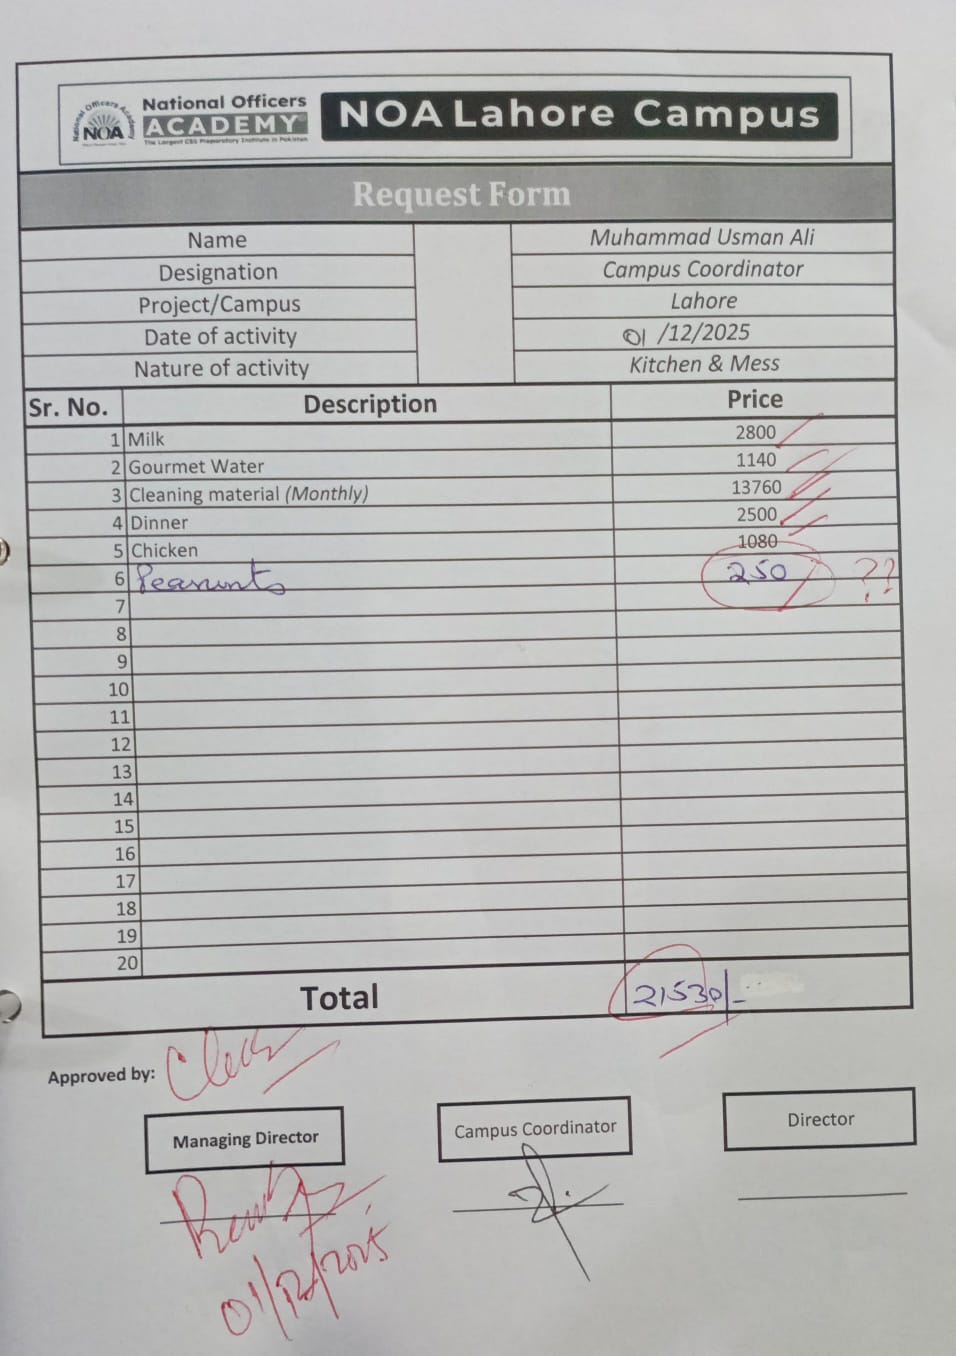 National Officers
ACADEMY
The Largest CSS Preparatory Institute in Pakistan
National Officers Academy
NOA
NOA Lahore Campus
Request Form
Name Muhammad Usman Ali
Designation Campus Coordinator
Project/Campus Lahore
Date of activity 01/12/2025
Nature of activity Kitchen & Mess
Sr. No. Description Price
1 Milk 2800
2 Gourmet Water 1140
3 Cleaning material (Monthly) 13760
4 Dinner 2500
5 Chicken 1080
6 Peanunts 250 ??
7
8
9
10
11
12
13
14
15
16
17
18
19
20
Total 21530/-
Approved by:
Managing Director Campus Coordinator Director
01/12/2025